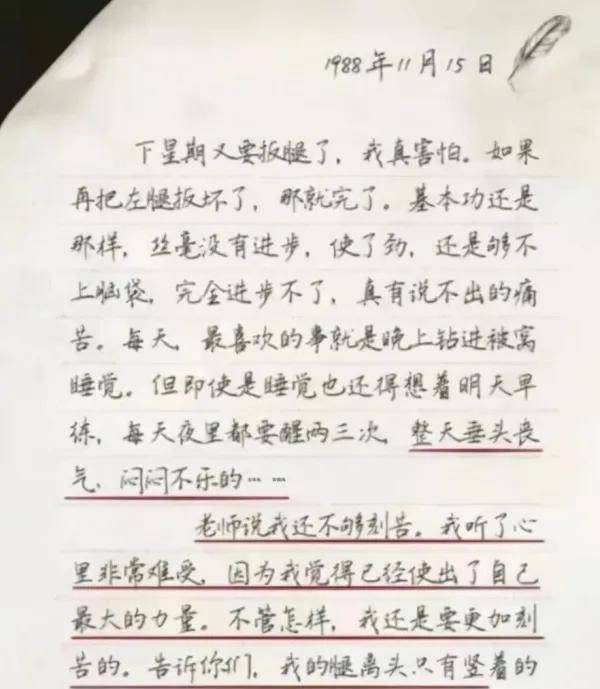 1988年11月15日
下星期又要扳腿了，我真害怕。如果
再把左腿扳坏了，那就完了。基本功还是
那样，丝毫没有进步，使了劲，还是够不
上脑袋，完全进步不了，真有说不出的痛
苦。每天，最喜欢的事就是晚上钻进被窝
睡觉。但即使是睡觉也还得想着明天早
练，每天夜里都要醒两三次，整天垂头丧
气、闷闷不乐的……
老师说我还不够刻苦。我听了心
里非常难受，因为我觉得已经使出了自己
最大的力量。不管怎样，我还是要更加刻
苦的。告诉你们，我的腿离头只有竖着的